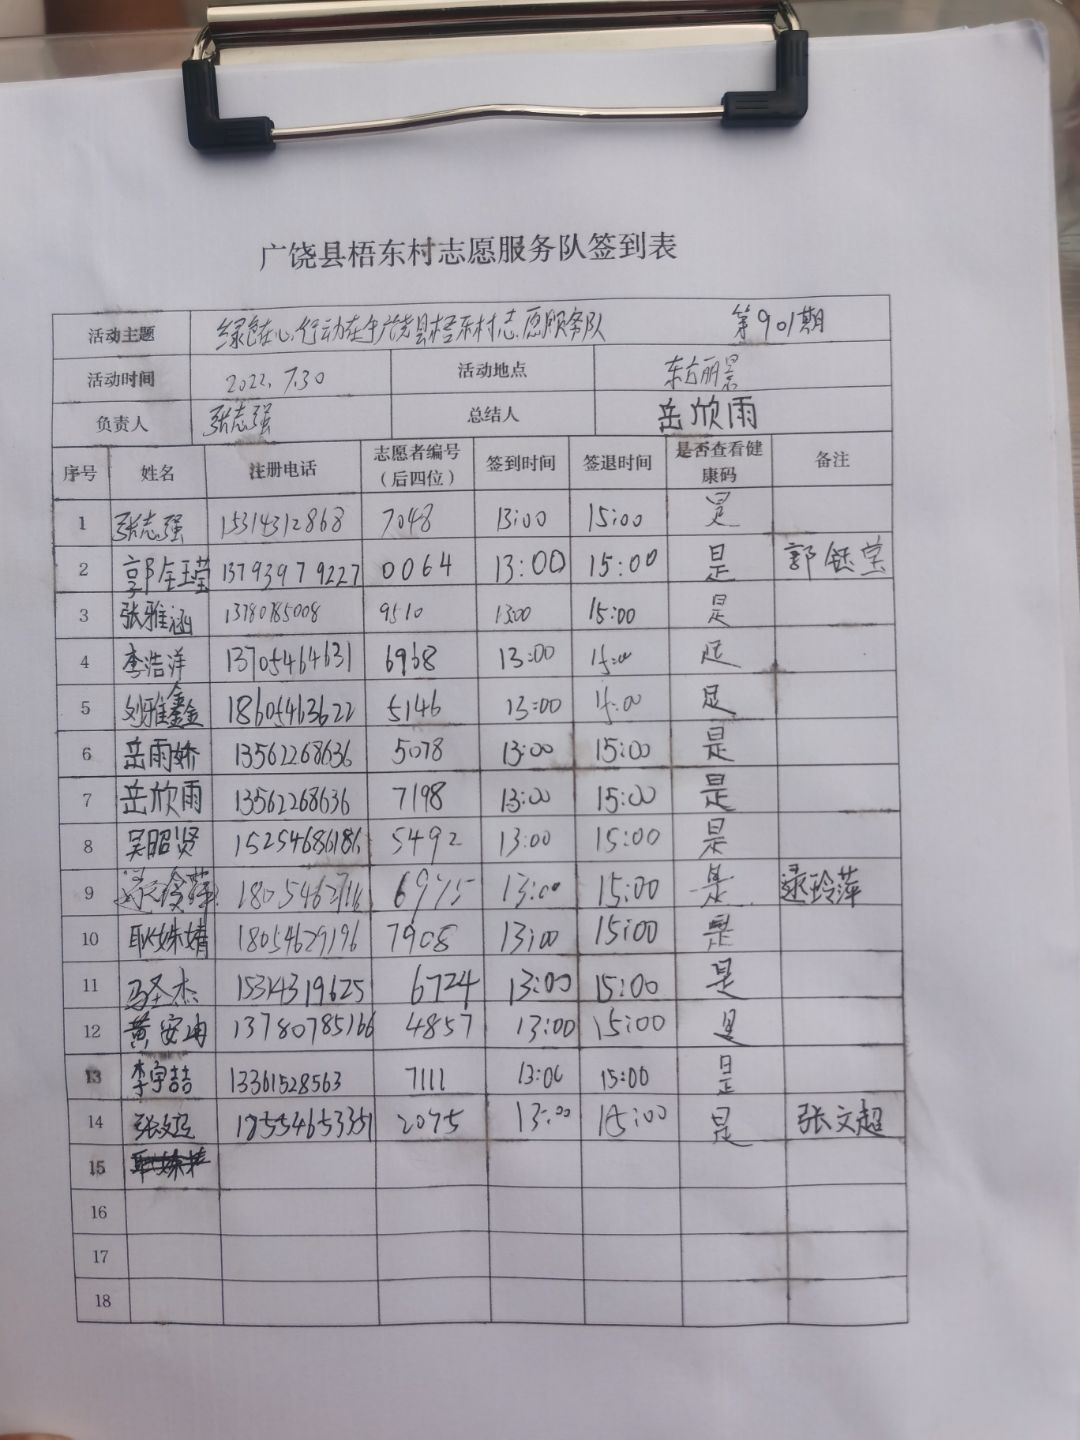 广饶县梧东村志愿服务队签到表
活动主题 绿色在心,行动在手广饶县梧东村志愿服务队 第901期
活动时间 2022.7.30 活动地点 东方丽景
负责人 张志强 总结人 岳欣雨
序号 姓名 注册电话 志愿者编号(后四位) 签到时间 签退时间 是否查看健康码 备注
1 张志强 15314312868 7048 13:00 15:00 是
2 郭钰莹 13793979227 0064 13:00 15:00 是 郭钰莹
3 张雅涵 13780785008 9510 13:00 15:00 是
4 李浩洋 13705464631 6968 13:00 15:00 是
5 刘雅鑫 18605463622 5146 13:00 15:00 是
6 岳雨娇 13562268636 5078 13:00 15:00 是
7 岳欣雨 13562268636 7198 13:00 15:00 是
8 吴昭贤 15254686186 5492 13:00 15:00 是
9 逯玲萍 6975 13:00 15:00 是 逯玲萍
10 耿姝婧 18054629196 7908 13:00 15:00 是
11 马圣杰 15314319625 6724 13:00 15:00 是
12 黄安冉 13780785166 4857 13:00 15:00 是
13 李宇喆 13361528563 7111 13:00 15:00 是
14 张文超 2075 13:00 15:00 是 张文超
15
16
17
18